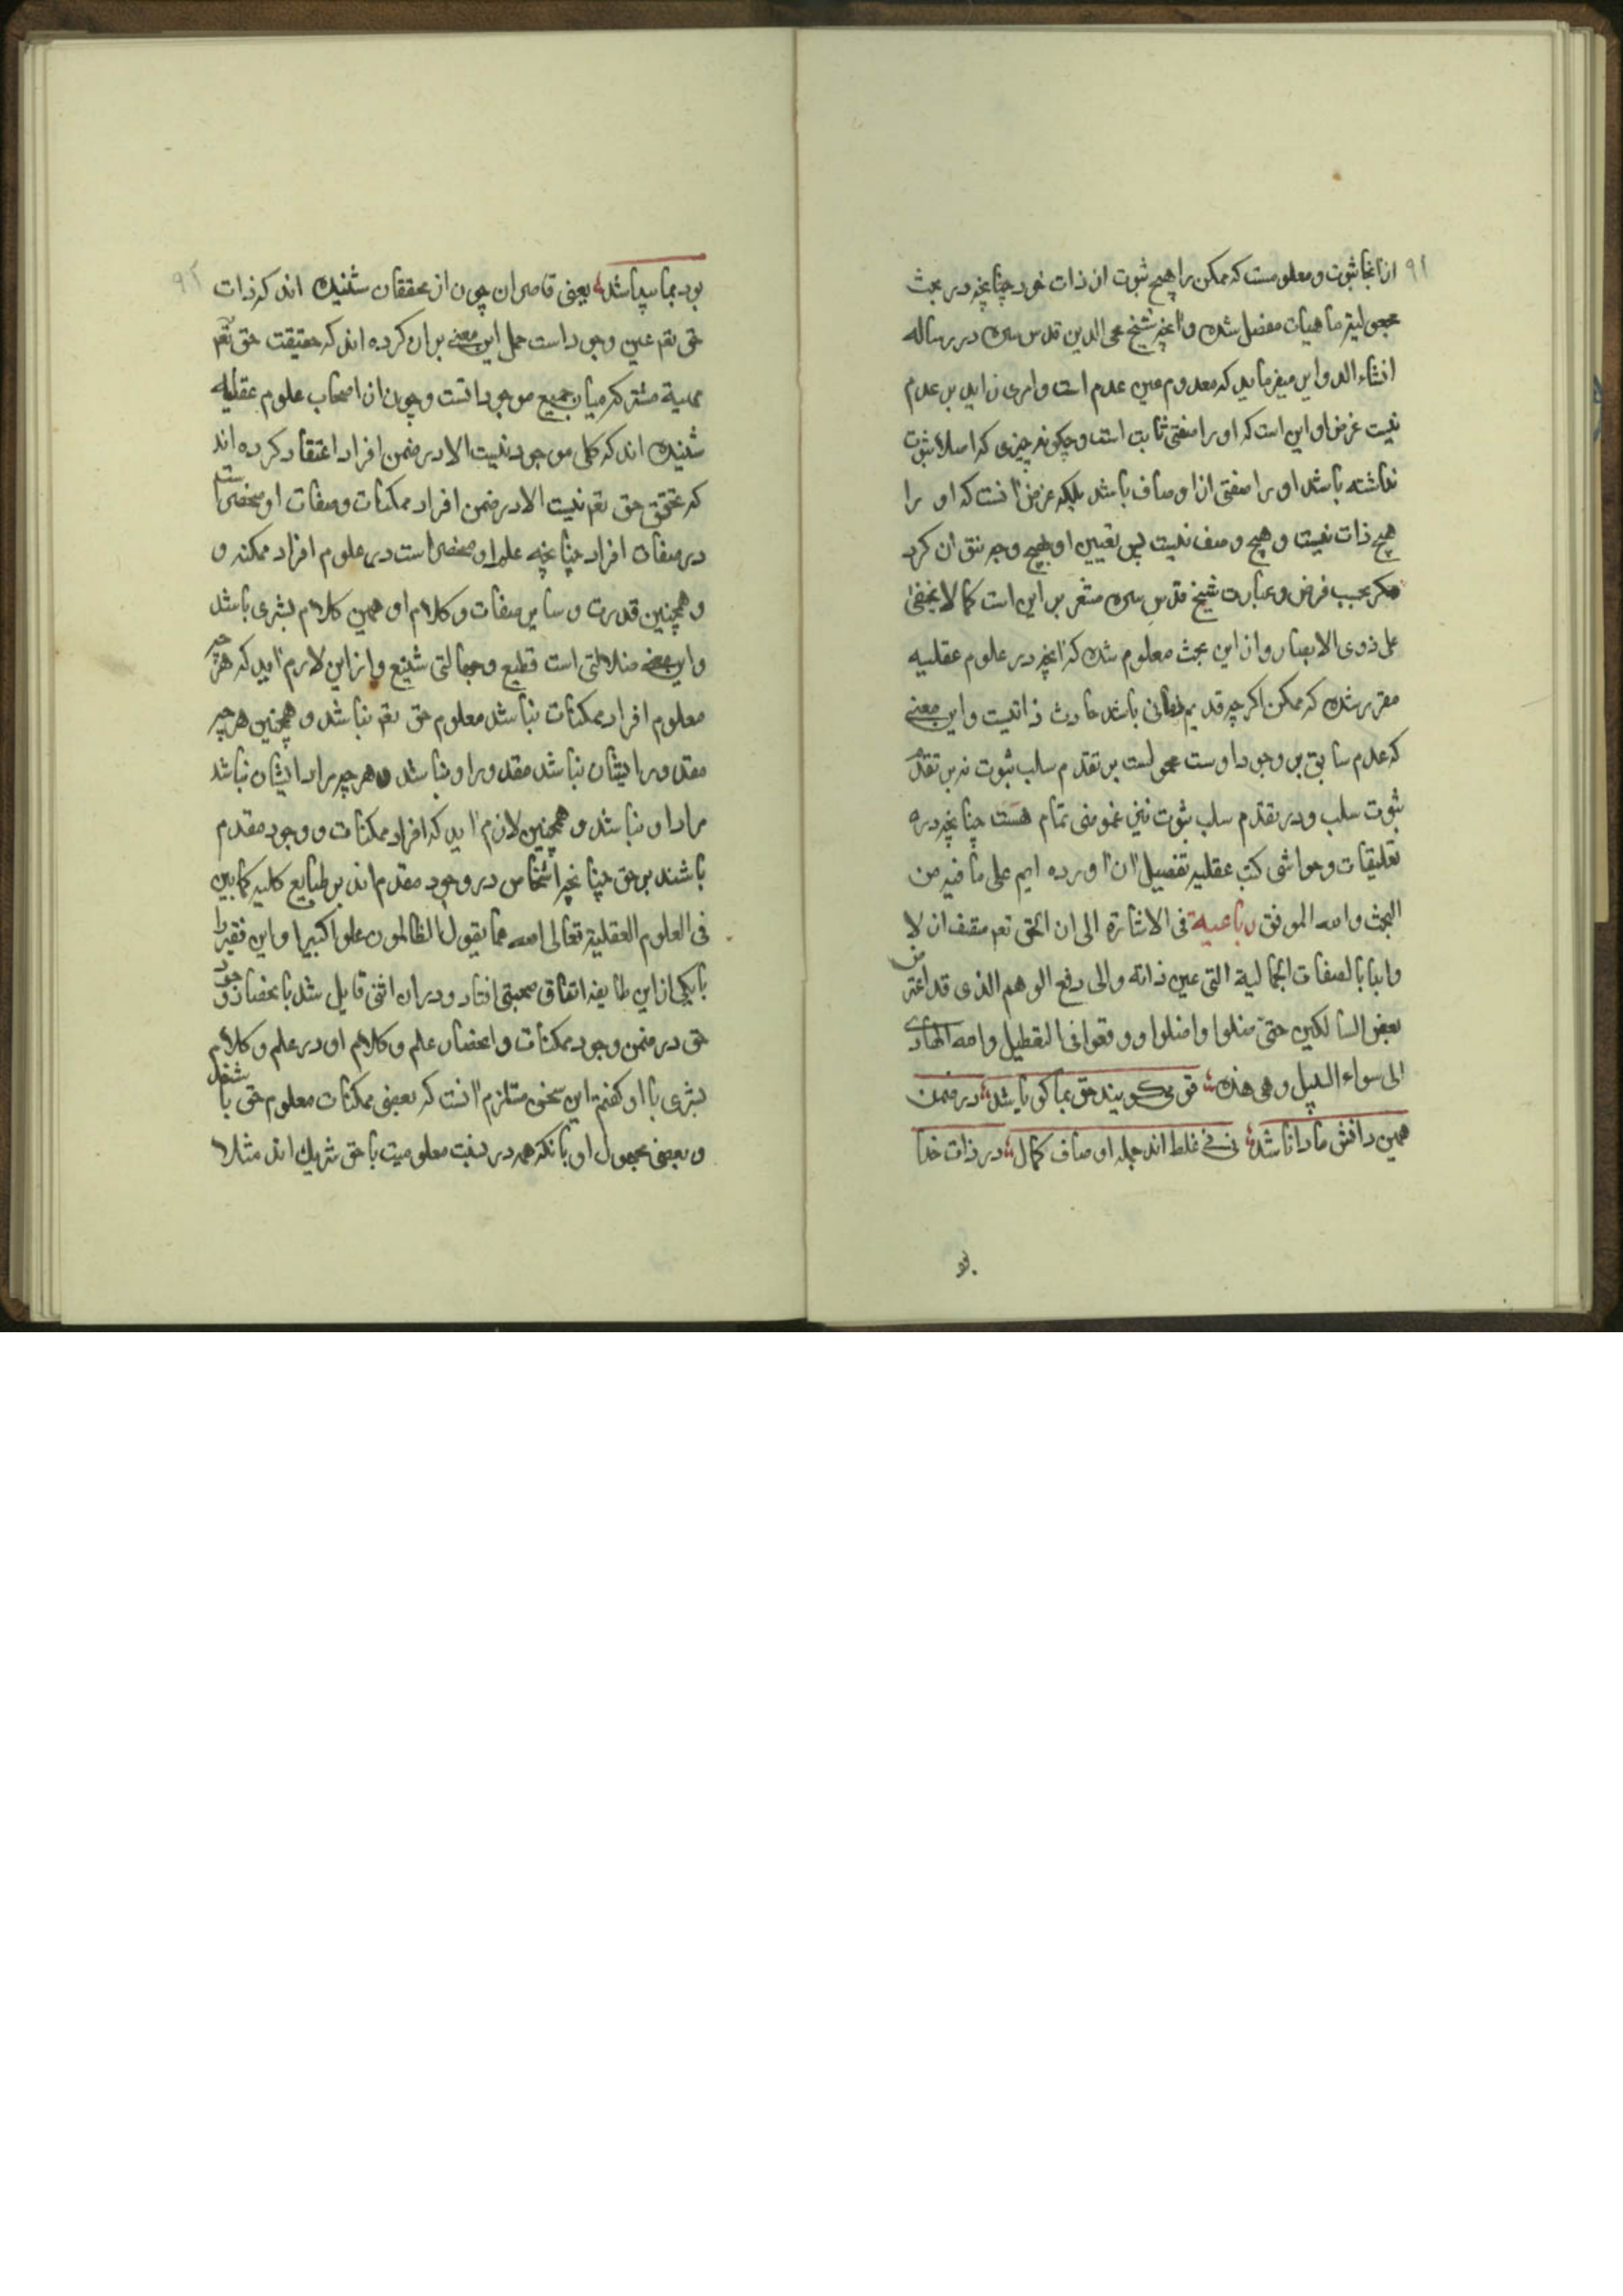 ٩١
از انجا ثبوت و معلومست که ممکن را هیچ ثبوت از ذات خود چنانچه در بحث
مجعولیة ماهیات مفصل شده و آنچه شیخ محی الدین قدس سره در رساله
انشاء الدوایر میفرماید که معدوم عین عدم است و امری زاید بر عدم
نیست غرض او این است که او را صفتی ثابت است و چکونه چیزی که اصلا ثبوت
نداشته باشد او را صفتی از اوصاف باشد بلکه غرض آنست که او را
هیچ ذات نیست و هیچ وصف نیست پس تعیین او بهیچ وجه نتوان کرد
مکر بحسب فرض و عبارت شیخ قدس سره مشعر بر این است کما لا یخفی
علی ذوی الابصار و از این بحث معلوم شد که آنچه در علوم عقلیه
مقرر شده که ممکن اکر چه قدیم زمانی باشد حادث ذاتیست و این معنی
که عدم سابق بر وجود اوست محمولست بر تقدم سلب ثبوت نه بر تقدم
ثبوت سلب و در تقدم سلب ثبوت نیز غموضی تمام هست چنانچه در
تعلیقات و حواشی کتب عقلیه تفصیل آن آورده ایم علی ما فیه من
البحث و الله الموفق رباعیة فی الاشارة الی ان الحق تعم متصف ازلا
وابدا بالصفات الجمالیة التی عین ذاته والی دفع الوهم الذی قد اعتر من
بعض السالکین حتی ضلوا واضلوا ووقعوا فی التعطیل والله الهادی
الی سواء السبیل وهی هذه قومی کویند حق بما کویا شد در ضمن
همین دانش ما دانا شد نی نی غلط اند جمله اوصاف کمال در ذات خدا
بو
٩٢
بود بما پیدا شد بعضی قاصران چون از محققان شنیده اند که ذات
حق تعم عین وجود است حمل این معنی بران کرده اند که حقیقت حق تعم
مشترکه میان جمیع موجوداتست و چون از اصحاب علوم عقلیه
شنیده اند که کلی موجود نیست الا در ضمن افراد اعتقاد کرده اند
که تحقق حق تعم نیست الا در ضمن افراد ممکنات و صفات او منحصر است
در صفات افراد چنانچه علم او منحصر است در علوم افراد ممکنه و
و همچنین قدرت و سایر صفات و کلام او همین کلام بشری باشد
و این معنی ضلالتی است فظیع و جهالتی شنیع و از این لازم آید که هر چه
معلوم افراد ممکنات نباشد معلوم حق تعم نباشد و همچنین هر چه
مقدور ایشان نباشد مقدور او نباشد و هر چه مراد ایشان نباشد
مراد او نباشد و همچنین لازم آید که افراد ممکنات و وجود مقدم
باشند بر حق چنانچه اشخاص در وجود مقدم اند بر طبایع کلیه کما بین
فی العلوم العقلیة تعالی الله عما یقول الظالمون علوا کبیرا و این فقیر را
با یکی از این طایفه اتفاق صحبتی افتاد و در ان اثنی قایل شد بانحصار وجود
حق در ضمن وجود ممکنات و انحصار علم و کلام او در علم و کلام
بشری با او کفتم این سخن مستلزم آنست که بعضی ممکنات معلوم حق باشند
و بعضی مجهول او با نکه همه در نسبت معلومیت با حق شریک اند مثلا